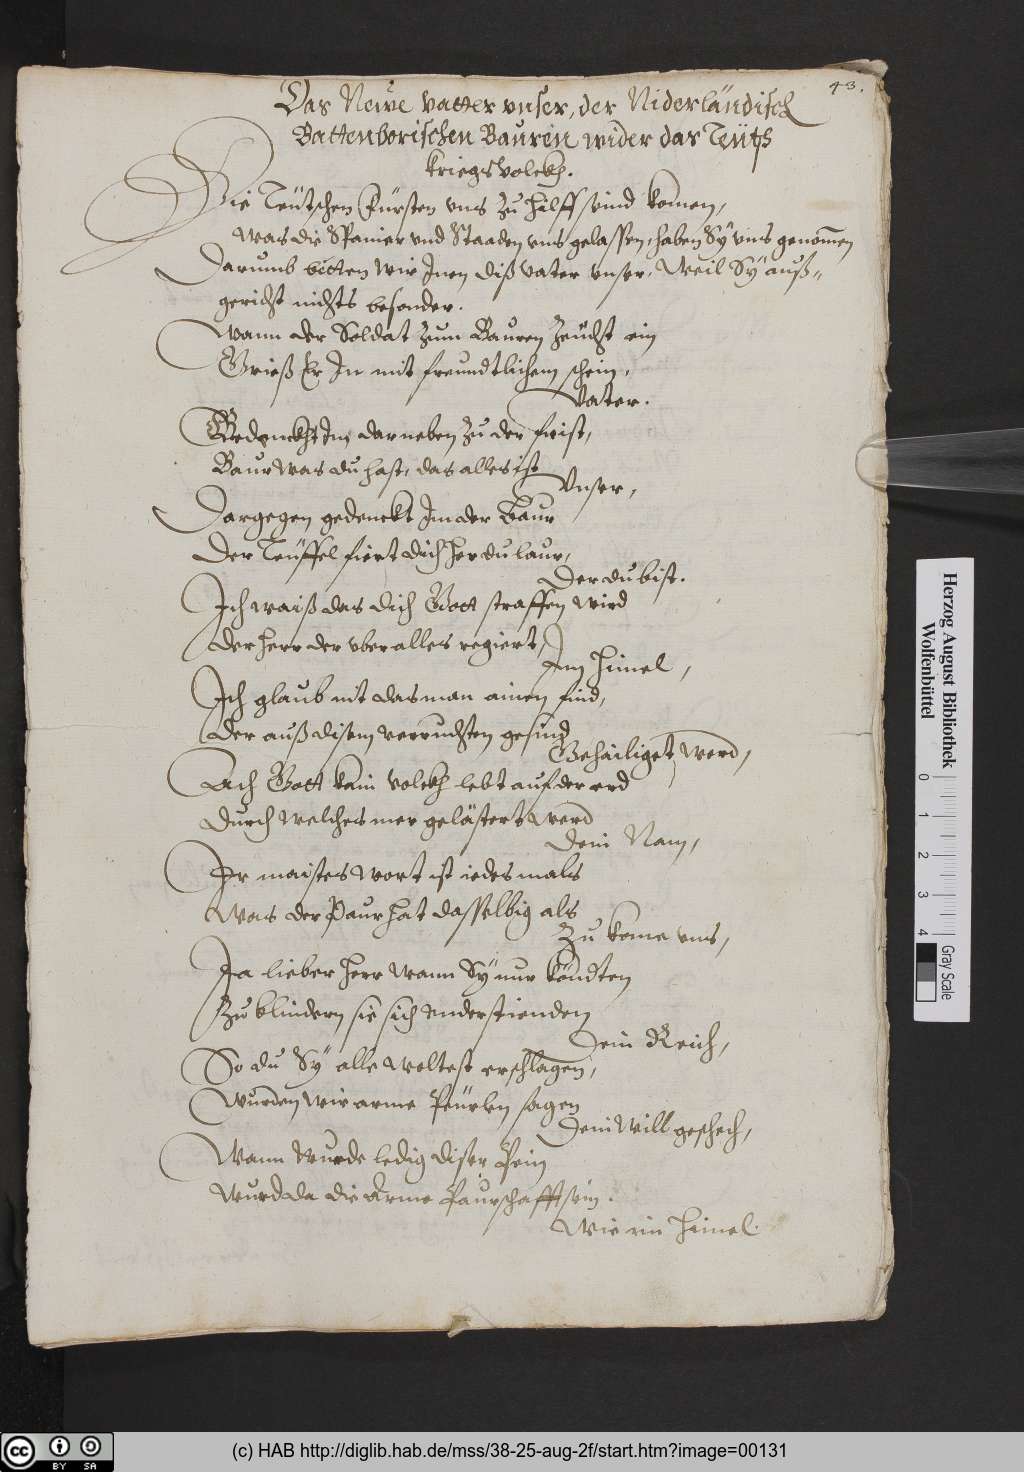 43.
Das Newe vatter vnser, der Niderländisch
Battenborischen Bauren wider das Teütsch
kriegsvolckh.
Die Teütschen Fürsten vns zu hilff seind komen,
Was die Spanier vnd Staaden vns gelassen, haben Sÿ vns genomen
Darumb bitten wir Inen diß Vater vnser, Weil Sÿ auß-
gericht nichts besonder.
Wann der Soldat zum Bauren zeücht ein
Grieß Er In mit freundtlichem schein,
Vater.
Gedenckht Im darneben zu der frist,
Baur was du hast, das alles ist
Vnser,
Dargegen gedenckt Im der Baur
Der Teüffel fiert dich her du laur,
Der du bist.
Ich waiß das dich Gott straffen wird
der herr der vber alles regiert,
Im Himel,
Ich glaub nit das man ainen find,
der auß disem verruchten gesind
Gehailiget werd,
Ach Gott kain volckh lebt auf der erd
durch welches mer gelästert werd
dein Nam,
Ir maistes wort ist iedesmals
Was der Paur hat dasselbig als
Zu kome vns,
Ja lieber herr wann Sÿ nur köndten
Zu blindern sie sich vnderstienden
Dein Reich,
So du Sÿ alle woltest erschlagen,
Wurden wir arme Peürlen sagen
Dein will geschech,
Wann wurde ledig diser Pein
Wurd da die Arme Paurschafft sein.
Wie im Himel.
Herzog August Bibliothek
Wolfenbüttel
0 1 2 3 4
Gray Scale
cc BY SA
(c) HAB http://diglib.hab.de/mss/38-25-aug-2f/start.htm?image=00131